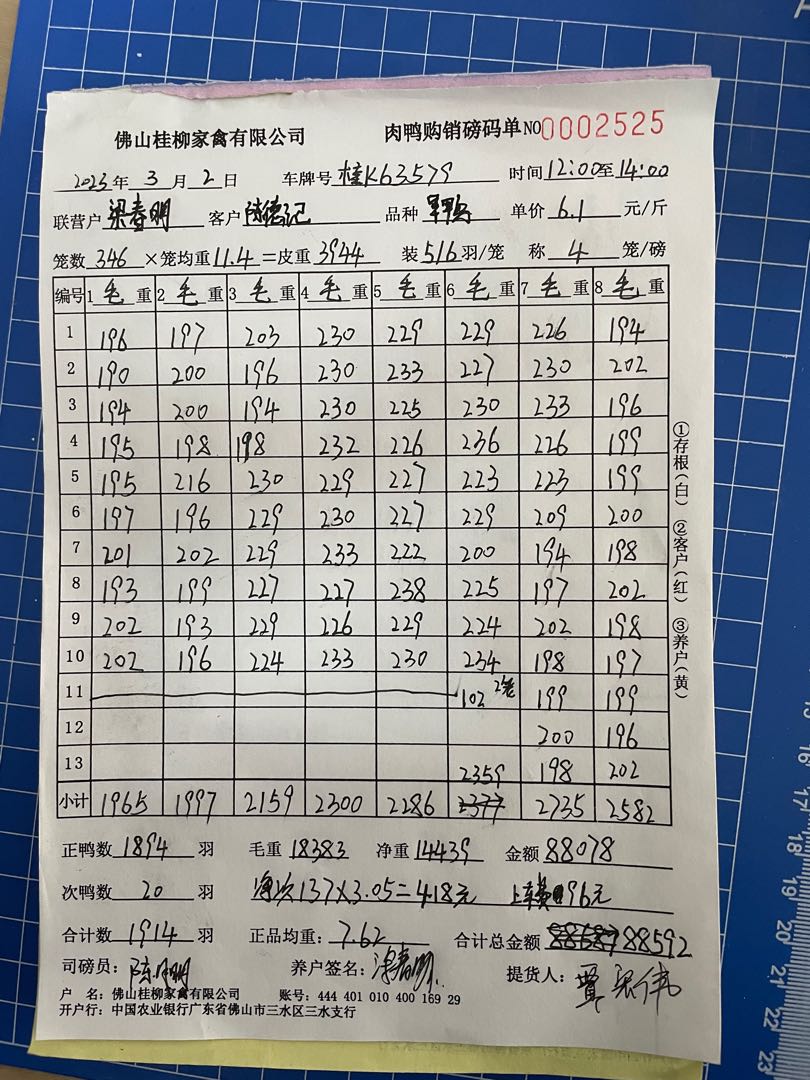 佛山桂柳家禽有限公司 肉鸭购销磅码单 NO 0002525
2023年 3 月 2 日 车牌号 桂K63579 时间 12:00至14:00
联营户 梁春明 客户 陈德记 品种 单价 6.1 元/斤
笼数 346 ×笼均重 11.4 =皮重 3944 装 5/6 羽/笼 称 4 笼/磅
编号 1 毛 重 2 毛 重 3 毛 重 4 毛 重 5 毛 重 6 毛 重 7 毛 重 8 毛 重
1 196 197 203 230 229 229 226 194
2 190 200 196 230 233 227 230 202
3 194 200 194 230 225 230 233 196
4 195 198 198 232 226 236 226 199
5 195 216 230 229 227 223 223 199
6 197 196 229 230 227 229 209 200
7 201 202 229 233 222 200 194 198
8 193 199 227 227 238 225 197 202
9 202 193 229 226 229 224 202 198
10 202 196 224 233 230 234 198 197
11 102 2笼 199 199
12 200 196
13 2359 198 202
小计 1965 1997 2159 2300 2286 2377 2735 2582
正鸭数 1894 羽 毛重 18383 净重 14439 金额 88078
次鸭数 20 羽 淘次137×3.05=418元 上车费96元
合计数 1914 羽 正品均重: 7.62 合计总金额 88592
司磅员: 陈明 养户签名: 梁春明 提货人:
户 名: 佛山桂柳家禽有限公司 账号: 444 401 010 400 169 29
开户行: 中国农业银行广东省佛山市三水区三水支行
①存根(白) ②客户(红) ③养户(黄)
15
16
17
18
19
20
21
22
23